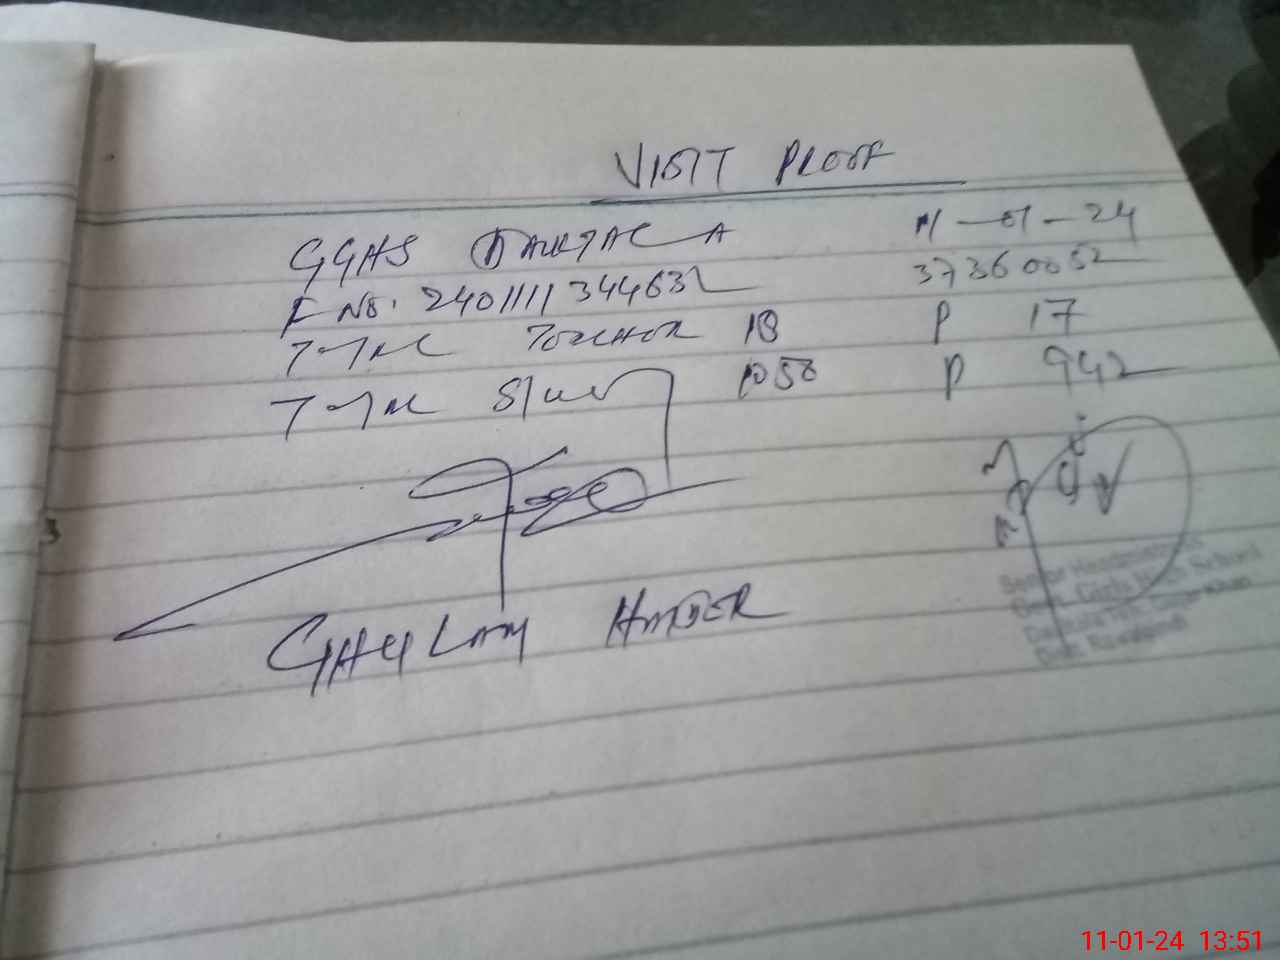 VISIT PROOF
GGHS DAULTALA 11-01-24
F NO. 2401111344632 37360052
TOTAL TEACHER 18 P 17
TOTAL 1058 P 942
GHULAM HAIDER
Senior Headmistress
Govt. Girls High School
Daultala
Distt. Rawalpindi
11-01-24 13:51